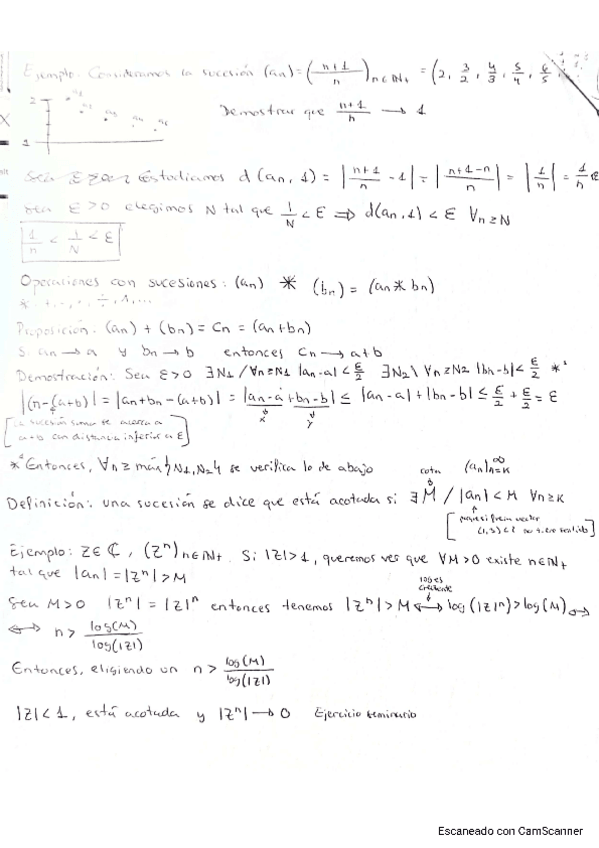 Ejemplo: Consideramos la sucesión (an) = (n+1/n) n∈ℕ+ = (2, 3/2, 4/3, 5/4, 6/5,
2
1
Demostrar que n+1/n → 1
Estudiamos d(an, 1) = |n+1/n - 1| = |n+1-n/n| = |1/n| = 1/n
Sea ε>0 elegimos N tal que 1/N < ε ⟹ d(an, 1) < ε ∀n≥N
1/n < 1/N < ε
Operaciones con sucesiones: (an) * (bn) = (an * bn)
Proposición: (an) + (bn) = Cn = (an+bn)
Si an → a y bn → b entonces Cn → a+b
Demostración: Sea ε>0 ∃N1 / ∀n≥N1 |an-a| < ε/2 ∃N2 \ ∀n≥N2 |bn-b| < ε/2 *
|Cn-(a+b)| = |an+bn-(a+b)| = |an-a+bn-b| ≤ |an-a|+|bn-b| ≤ ε/2 + ε/2 = ε
x y
[La sucesión suma se acerca a
a+b con distancia inferior a ε]
* Entonces, ∀n ≥ máx{N1, N2} se verifica lo de abajo
cota (an)∞n=k
Definición: una sucesión se dice que está acotada si ∃M / |an| < M ∀n≥k
no tiene sentido]
Ejemplo: Z∈ℂ, (Zⁿ) n∈ℕ+. Si |Z|>1, queremos ver que ∀M>0 existe n∈ℕ+
tal que |an| = |Zⁿ| > M
log es
creciente
Sea M>0 |Zⁿ| = |Z|ⁿ entonces tenemos |Zⁿ| > M ⟷ log(|Z|ⁿ) > log(M) ⟷
⟷ n > log(M)/log(|Z|)
Entonces, eligiendo un n > log(M)/log(|Z|)
|Z| < 1, está acotada y |Zⁿ| → 0 Ejercicio seminario
Escaneado con CamScanner